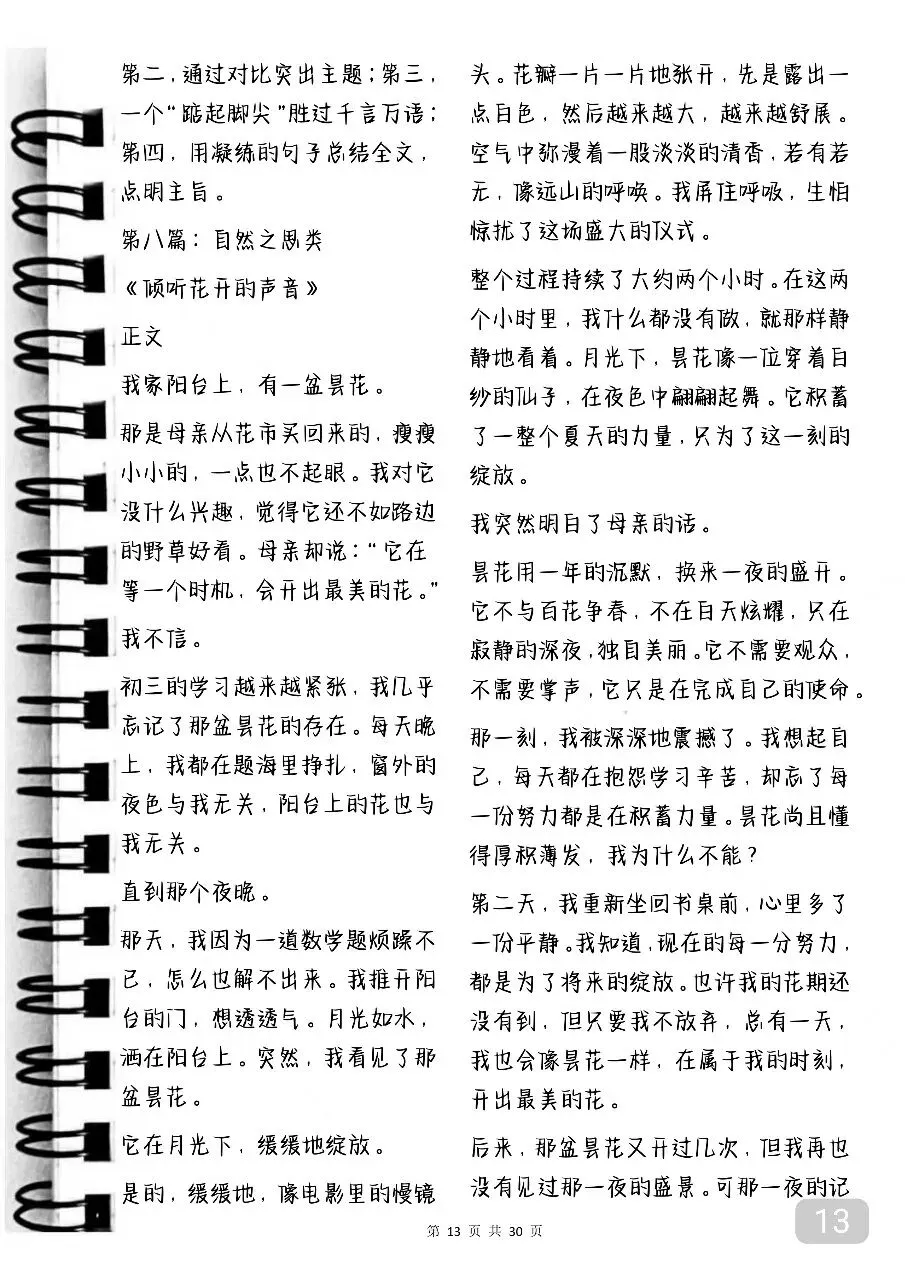 第二，通过对比突出主题；第三，
一个“踮起脚尖”胜过千言万语；
第四，用凝练的句子总结全文，
点明主旨。
第八篇：自然之思类
《倾听花开的声音》
正文
我家阳台上，有一盆昙花。
那是母亲从花市买回来的，瘦瘦
小小的，一点也不起眼。我对它
没什么兴趣，觉得它还不如路边
的野草好看。母亲却说：“它在
等一个时机，会开出最美的花。”
我不信。
初三的学习越来越紧张，我几乎
忘记了那盆昙花的存在。每天晚
上，我都在题海里挣扎，窗外的
夜色与我无关，阳台上的花也与
我无关。
直到那个夜晚。
那天，我因为一道数学题烦躁不
已，怎么也解不出来。我推开阳
台的门，想透透气。月光如水，
洒在阳台上。突然，我看见了那
盆昙花。
它在月光下，缓缓地绽放。
是的，缓缓地，像电影里的慢镜
头。花瓣一片一片地张开，先是露出一
点白色，然后越来越大，越来越舒展。
空气中弥漫着一股淡淡的清香，若有若
无，像远山的呼唤。我屏住呼吸，生怕
惊扰了这场盛大的仪式。
整个过程持续了大约两个小时。在这两
个小时里，我什么都没有做，就那样静
静地看着。月光下，昙花像一位穿着白
纱的仙子，在夜色中翩翩起舞。它积蓄
了一整个夏天的力量，只为了这一刻的
绽放。
我突然明白了母亲的话。
昙花用一年的沉默，换来一夜的盛开。
它不与百花争春，不在白天炫耀，只在
寂静的深夜，独自美丽。它不需要观众，
不需要掌声，它只是在完成自己的使命。
那一刻，我被深深地震撼了。我想起自
己，每天都在抱怨学习辛苦，却忘了每
一份努力都是在积蓄力量。昙花尚且懂
得厚积薄发，我为什么不能？
第二天，我重新坐回书桌前，心里多了
一份平静。我知道，现在的每一分努力，
都是为了将来的绽放。也许我的花期还
没有到，但只要我不放弃，总有一天，
我也会像昙花一样，在属于我的时刻，
开出最美的花。
后来，那盆昙花又开过几次，但我再也
没有见过那一夜的盛景。可那一夜的记
第 13 页 共 30 页
13